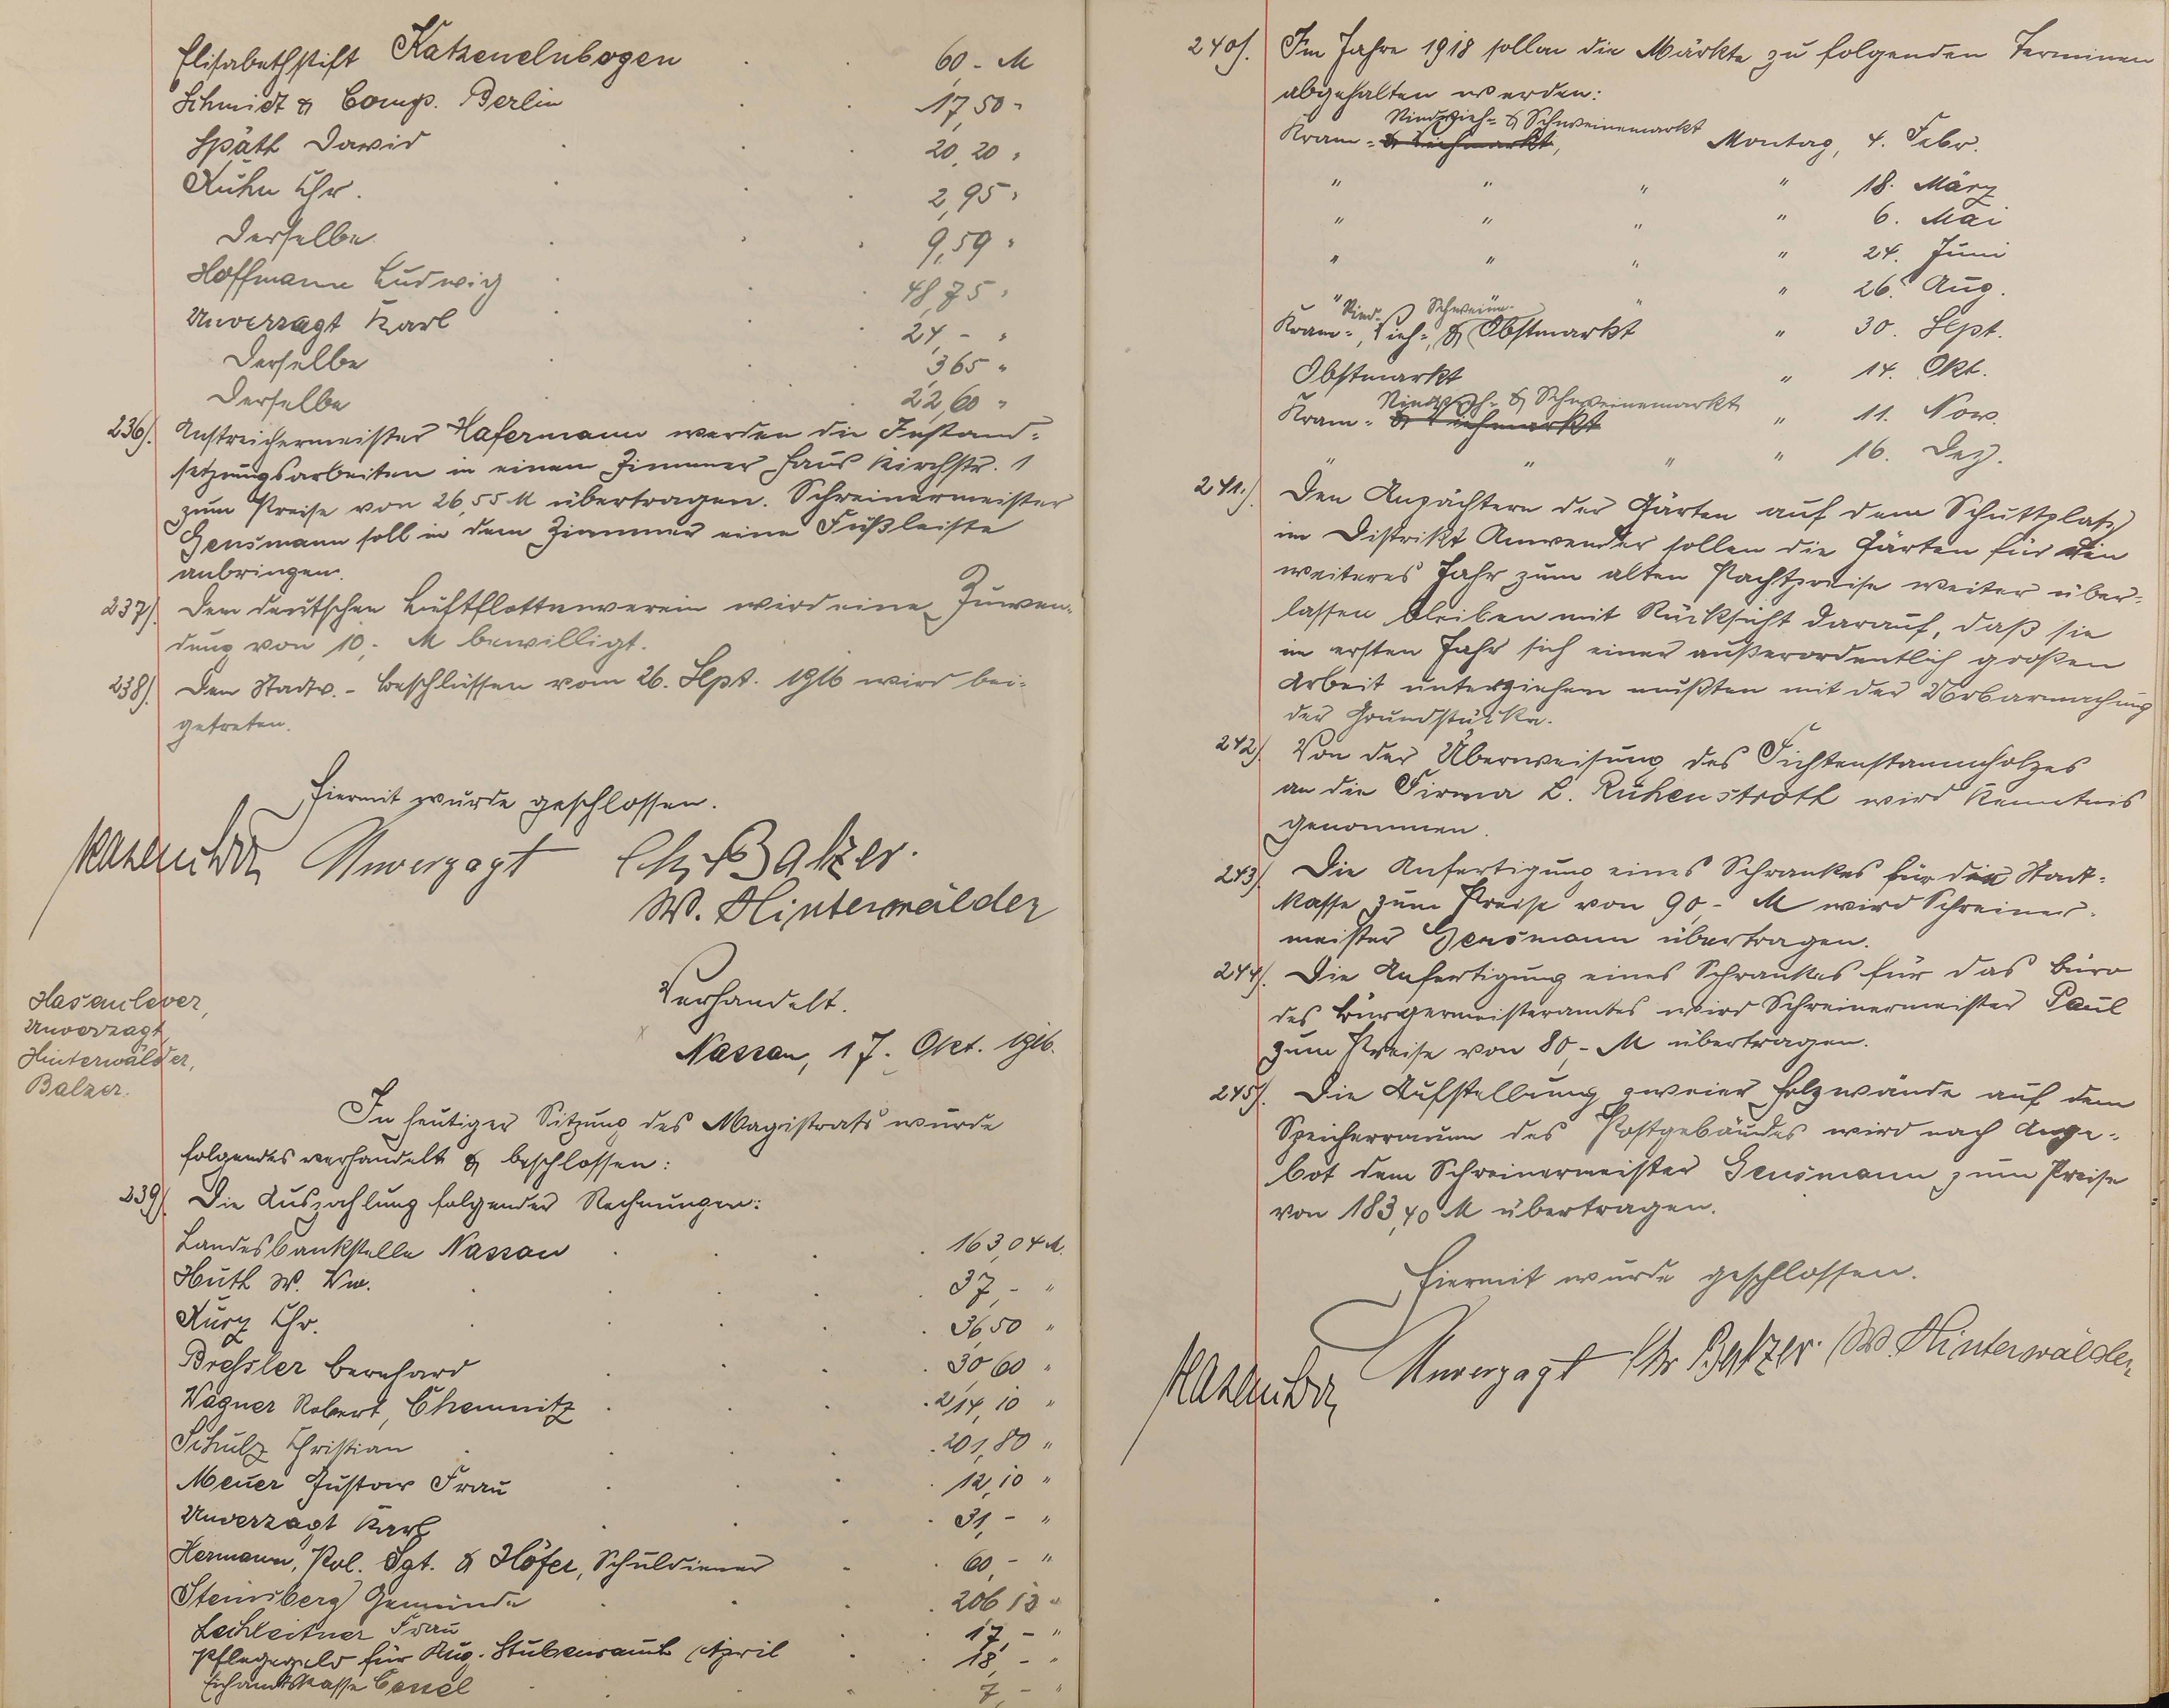 Elisabethstift Katzenelnbogen . . 60,- M
Schmidt & Comp. Berlin . 17,50 "
Späth David . . 20,20 "
Kuhn Chr. . . 2,95 "
Derselbe . . . 9,59 "
Hoffmann Ludwig . . . 48,75 "
Unverzagt Karl . . . 24,- "
Derselbe . . . 3,65 "
Derselbe . . . 22,60 "
236). Anstreichermeister Hafermann werden die Instand-
setzungsarbeiten in einem Zimmer Haus Kirchstr. 1
zum Preise von 26,55 M übertragen. Schreinermeister
Gensmann soll in dem Zimmer eine Fußleiste
anbringen.
237). Dem deutschen Luftflottenverein wird eine Zuwen-
dung von 10,- M bewilligt.
238). Den Stadtv.-Beschlüssen vom 26. Sept. 1916 wird bei-
getreten.
Hiermit wurde geschlossen.
Hasenclever Unverzagt Chr. Balzer.
W. Hinterwälder
Hasenclever,
Unverzagt,
Hinterwälder,
Balzer.
Verhandelt.
Nassau, 17. Okt. 1916.
In heutiger Sitzung des Magistrats wurde
folgendes verhandelt & beschlossen:
239). Die Auszahlung folgender Rechnungen:
Landesbankstelle Nassau . . . 163,04 M.
Huth W. Ww. . . . 37,- "
Kurz Chr. . . . 36,50 "
Bressler Bernhard . . . 30,60 "
Wagner Robert, Chemnitz . . . 214,10 "
Schulz Christian . . . 201,80 "
Meuer Gustav Frau . . . 12,10 "
Unverzagt Karl . . . 31,- "
Hermann, Pol. Sgt. & Höfer, Schuldiener . . 60,- "
Steinsberg Gemeinde . . . 206,13 "
Lechleitner Frau . . 17,- "
Pflegegeld für Aug. Stubenrauch April . . 18,- "
Eichamtskasse Cassel . . . 7,- "
240). Im Jahre 1918 sollen die Märkte zu folgenden Terminen
abgehalten werden:
Rindvieh- & Schweinemarkt
Kram- & Viehmarkt, Montag, 4. Febr.
" " " " 18. März
" " " " 6. Mai
" " " " 24. Juni
" " " 26. Aug.
Rind- Schweine-
Kram-, Vieh-, & Obstmarkt " 30. Sept.
Obstmarkt " 14. Okt.
Rindvieh- & Schweinemarkt
Kram- & Viehmarkt " 11. Nov.
" " " " 16. Dez.
241.) Den Anpächtern der Gärten auf dem Schuttplatz
im Distrikt Anwender sollen die Gärten für ein
weiteres Jahr zum alten Pachtpreise weiter über-
lassen bleiben mit Rücksicht darauf, daß sie
im ersten Jahr sich einer außerordentlich großen
Arbeit unterziehen mußten mit der Urbarmachung
der Grundstücke.
242). Von der Überweisung des Fichtenstammholzes
an die Firma L. Ruhenstroth wird Kenntnis
genommen.
243). Die Anfertigung eines Schrankes für die Stadt-
kasse zum Preise von 90,- M wird Schreiner-
meister Gensmann übertragen.
244). Die Anfertigung eines Schrankes für das Büro
des Bürgermeisteramtes wird Schreinermeister Paul
zum Preise von 80,- M übertragen.
245). Die Aufstellung zweier Holzwände auf dem
Speicherraum des Postgebäudes wird nach Ange-
bot dem Schreinermeister Gensmann zum Preise
von 183,40 M übertragen.
Hiermit wurde geschlossen.
Hasenclever Unverzagt Chr Balzer. W. Hinterwälder